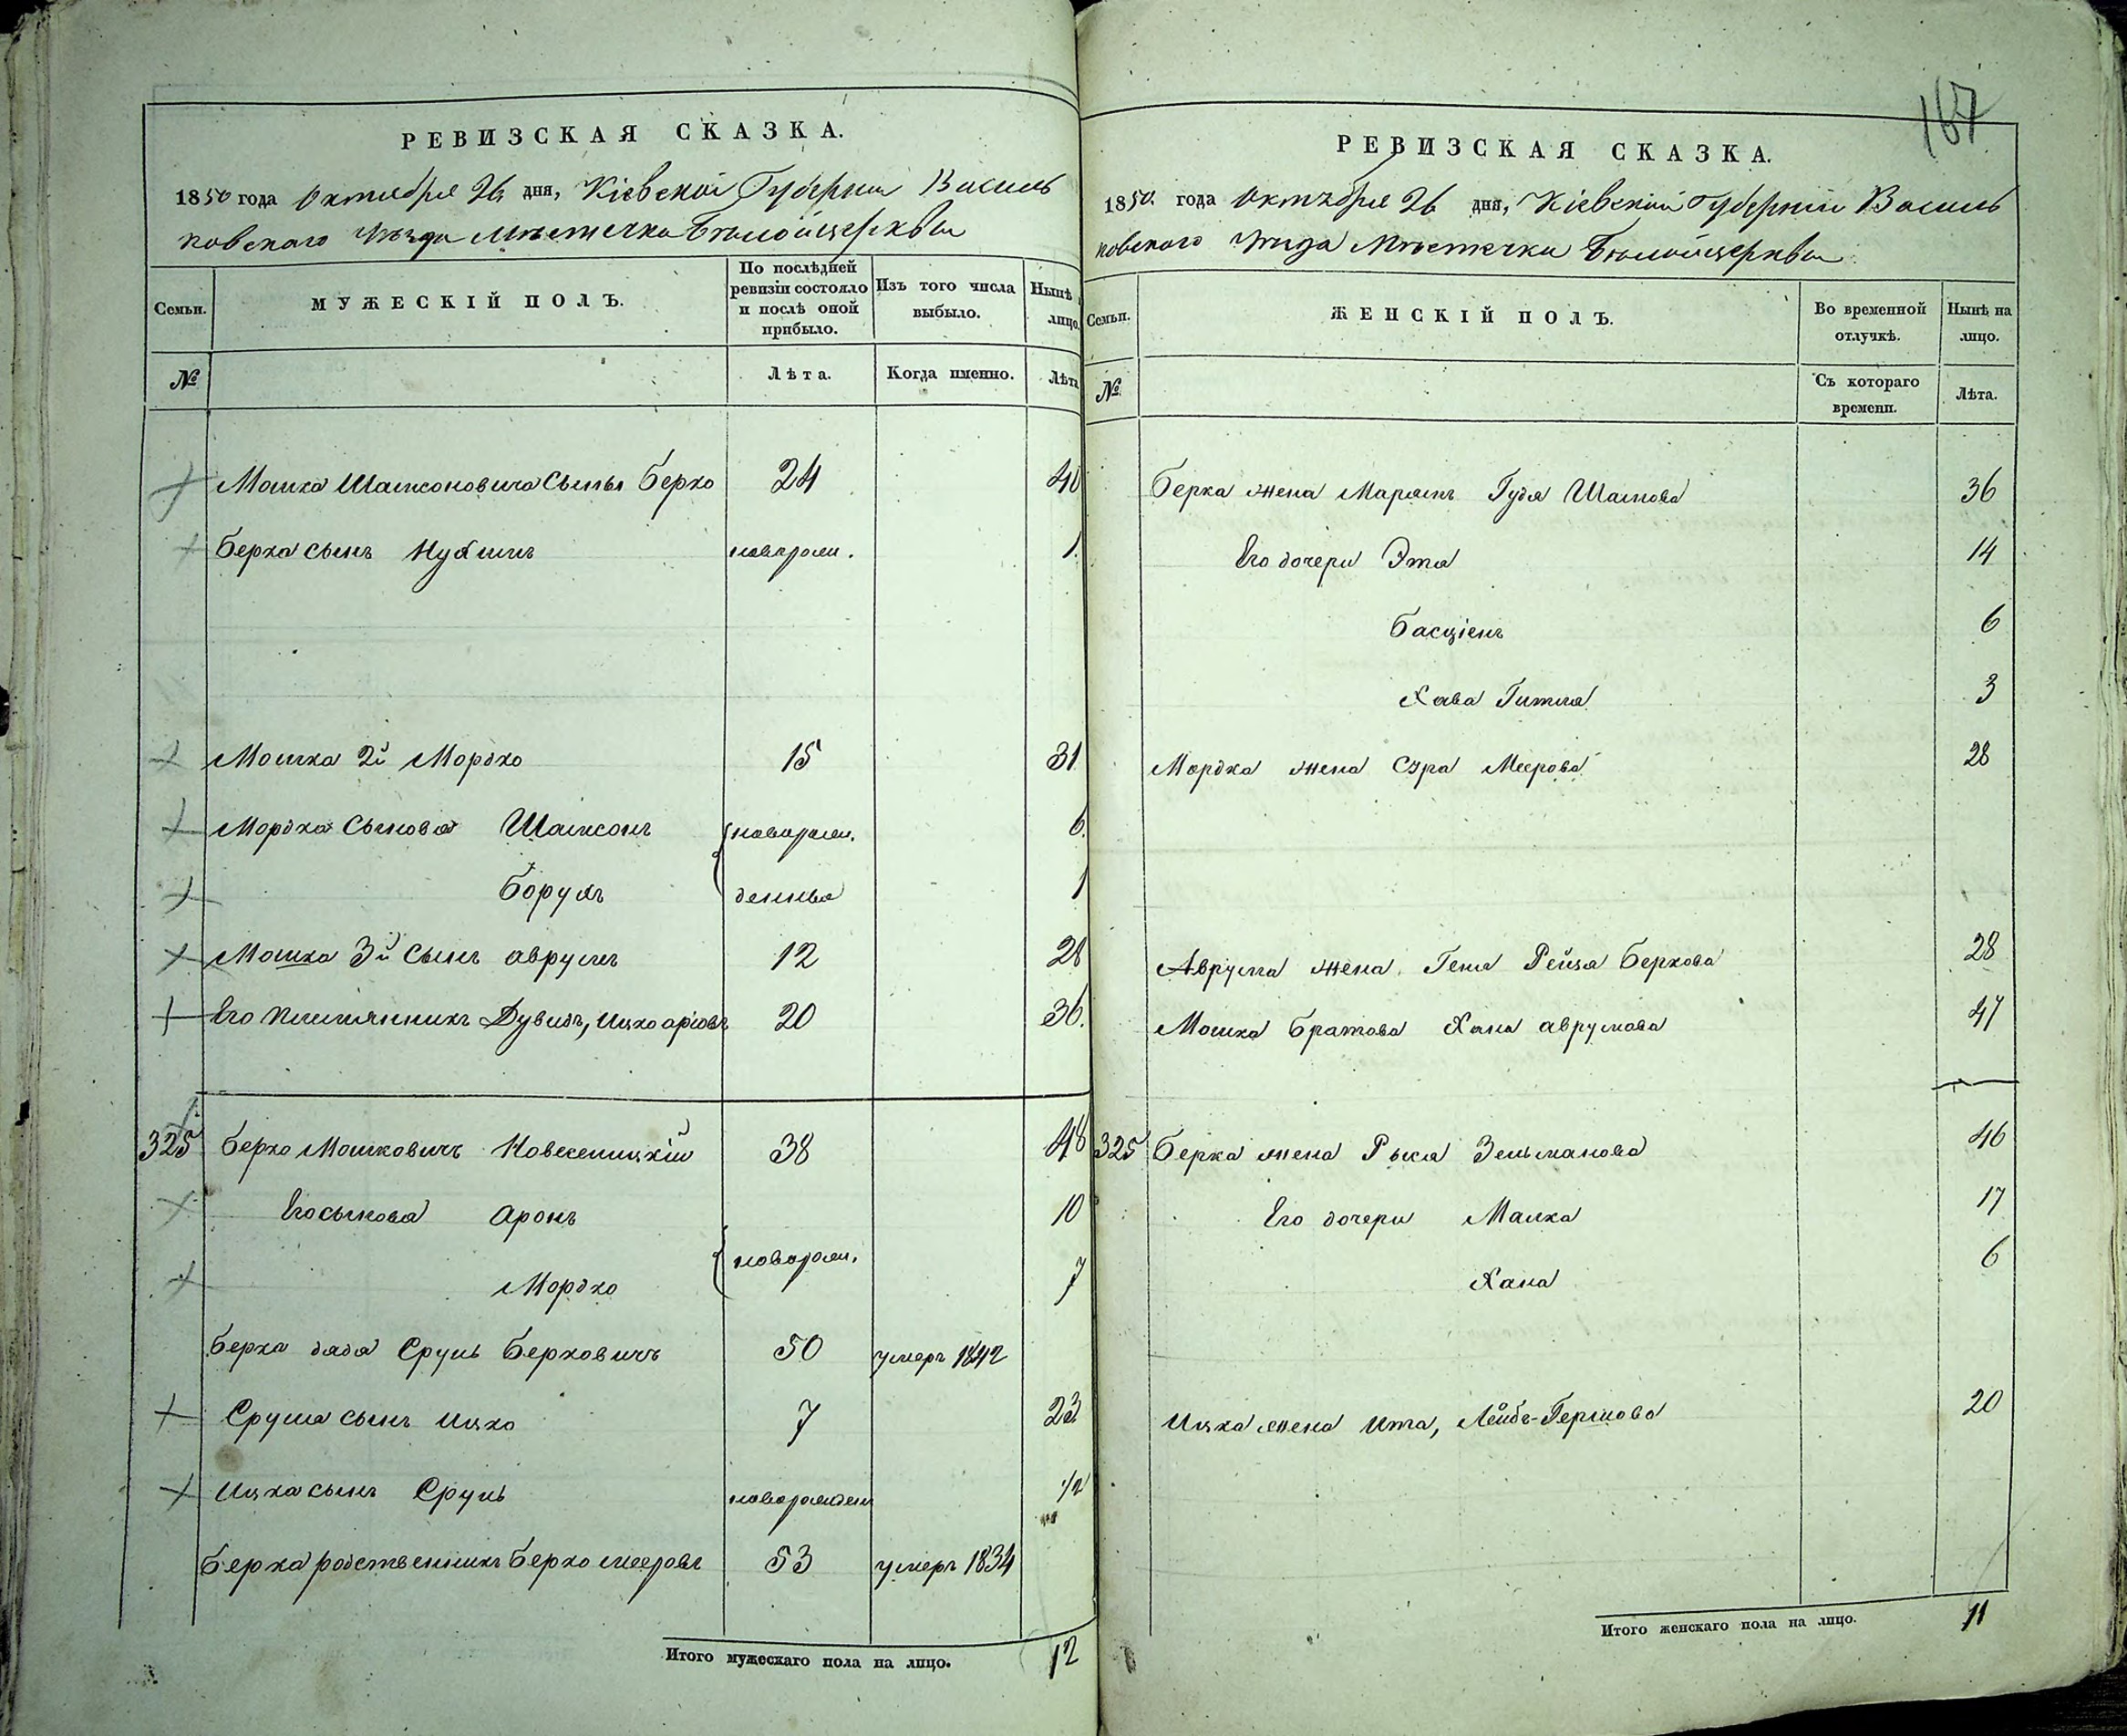 РЕВИЗСКАЯ СКАЗКА.
1850 года Октября 26 дня, Кіевской Губерніи Василь
ковскаго уѣзда Мѣстечка Бѣлойцеркви
Семьи.
МУЖЕСКІЙ ПОЛЪ.
По послѣдней ревизіи состояло и послѣ оной прибыло.
Изъ того числа выбыло.
Нынѣ лицо.
№
Лѣта.
Когда именно.
Лѣта
Мошка Шамсоновича Сынъ Берко 24 40
Берка сынъ Нухимъ новорож. 1
Мошка 2й Мордко 15 31
Мордка Сыновья Шамсонъ новорож. 6
Борухъ денныя 1
Мошка 3й Сынъ Аврумъ 12 28
Его племянникъ Дувидъ, Ицко Арiовъ 20 36
325 Берко Мошковичъ 38 48
Его сыновья Аронъ 10
Мордко новорож. 7
Берка дядя Сруль Берковичъ 50 умеръ 1842
Сруля сынъ Ицко 7 23
Ицка сынъ Сруль новорожден 1/2
Берка родственникъ Берко Мееровъ 53 умеръ 1834
Итого мужескаго пола на лицо. 12
167
РЕВИЗСКАЯ СКАЗКА.
1850. года Октября 26 дня, Кіевской Губерніи Василь
ковского уѣзда Мѣстечки Бѣлойцеркви
Семьи.
ЖЕНСКІЙ ПОЛЪ.
Во временной отлучкѣ.
Нынѣ на лицо.
№
Съ котораго времени.
Лѣта.
Берка жена Марьямъ Гудя Шамова 36
Его дочери Эта 14
Басціенъ 6
Хава Гитля 3
Мордка жена Сура Меерова 28
Аврума жена Геня Рейзя Беркова 28
Мошка братова Хана Аврумова 47
325 Берка жена Рыся Зельманова 46
Его дочери Малка 17
Хана 6
Ицка жена Ита, Лейбъ-Гершова 20
Итого женскаго пола на лицо. 11